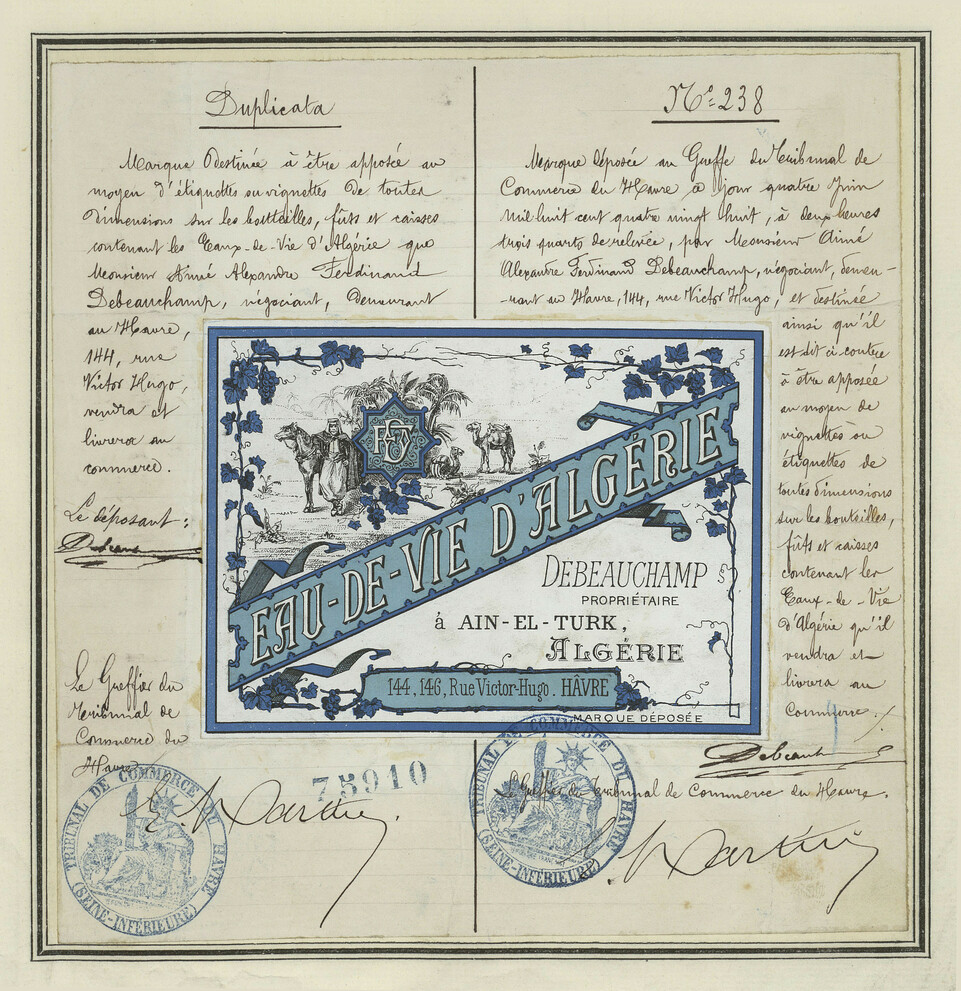 Duplicata
Marque destinée à être apposée au
moyen d'étiquettes ou vignettes de toutes
dimensions sur les bouteilles, fûts et caisses
contenant les Eaux-de-Vie d'Algérie que
Monsieur Aimé Alexandre Ferdinand
Debeauchamp, négociant, demeurant
au Havre,
144, rue
Victor Hugo,
vendra et
livrera au
commerce.
Le déposant:
Debeau
Le Greffier du
Tribunal de
Commerce du
Havre
TRIBUNAL DE COMMERCE DU HAVRE
(SEINE-INFÉRIEURE)
75910
No=238
Marque déposée au Greffe du Tribunal de
Commerce du Havre à jour quatre Juin
mil huit cent quatre vingt huit, à deux heures
trois quarts de relevée, par Monsieur Aimé
Alexandre Ferdinand Debeauchamp, négociant, demeu-
rant au Havre, 144, rue Victor Hugo, et destinée
ainsi qu'il
est dit ci-contre
à être apposée
au moyen de
vignettes ou
étiquettes de
toutes dimensions
sur les bouteilles,
fûts et caisses
contenant les
Eaux-de-Vie
d'Algérie qu'il
vendra et
livrera au
Commerce./.
Debeau
Le Greffier du Tribunal de Commerce du Havre.
TRIBUNAL DE COMMERCE DU HAVRE
(SEINE-INFÉRIEURE)
EAU-DE-VIE D'ALGÉRIE
DEBEAUCHAMP
PROPRIÉTAIRE
á AIN-EL-TURK,
ALGÉRIE
144, 146, Rue Victor-Hugo. HÂVRE
MARQUE DÉPOSÉE